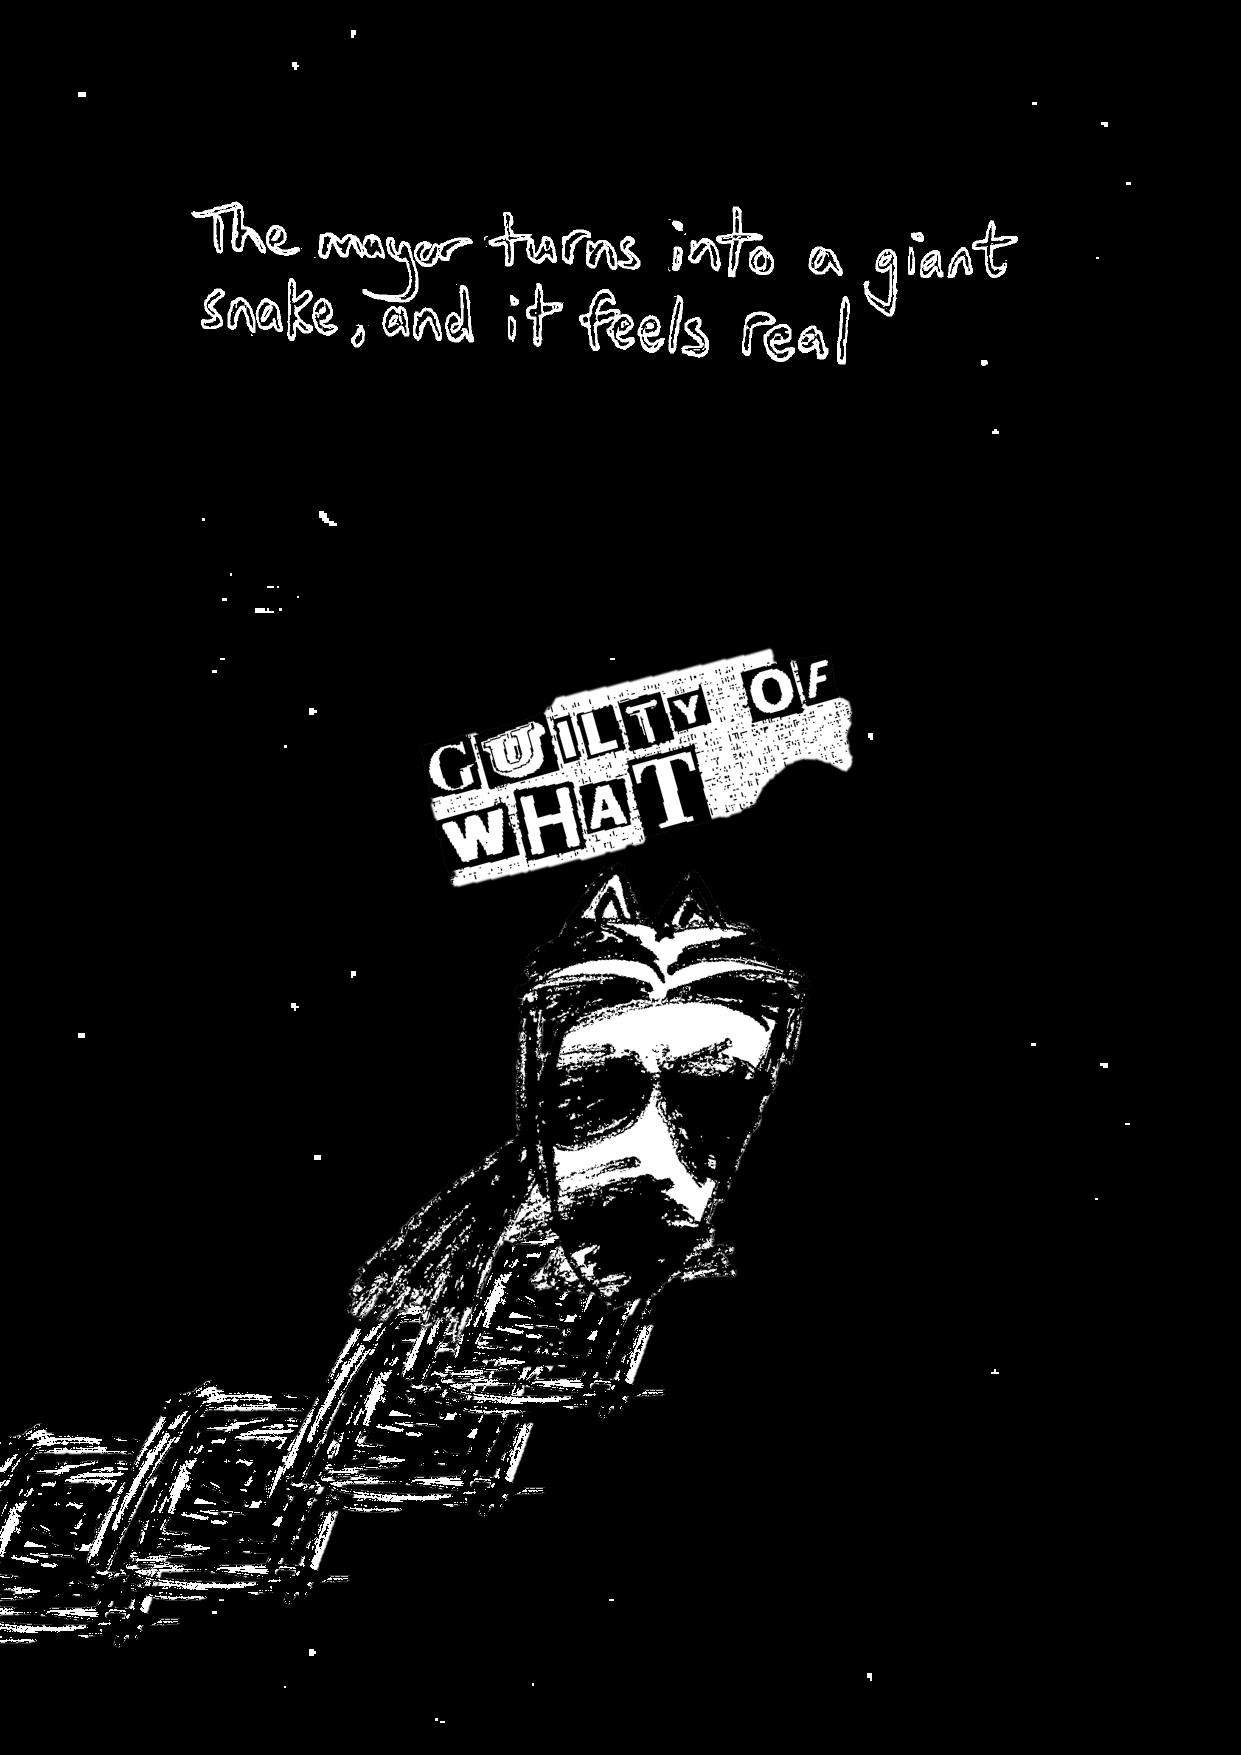 The mayor turns into a giant
snake, and it feels real
GUILTY OF
WHAT